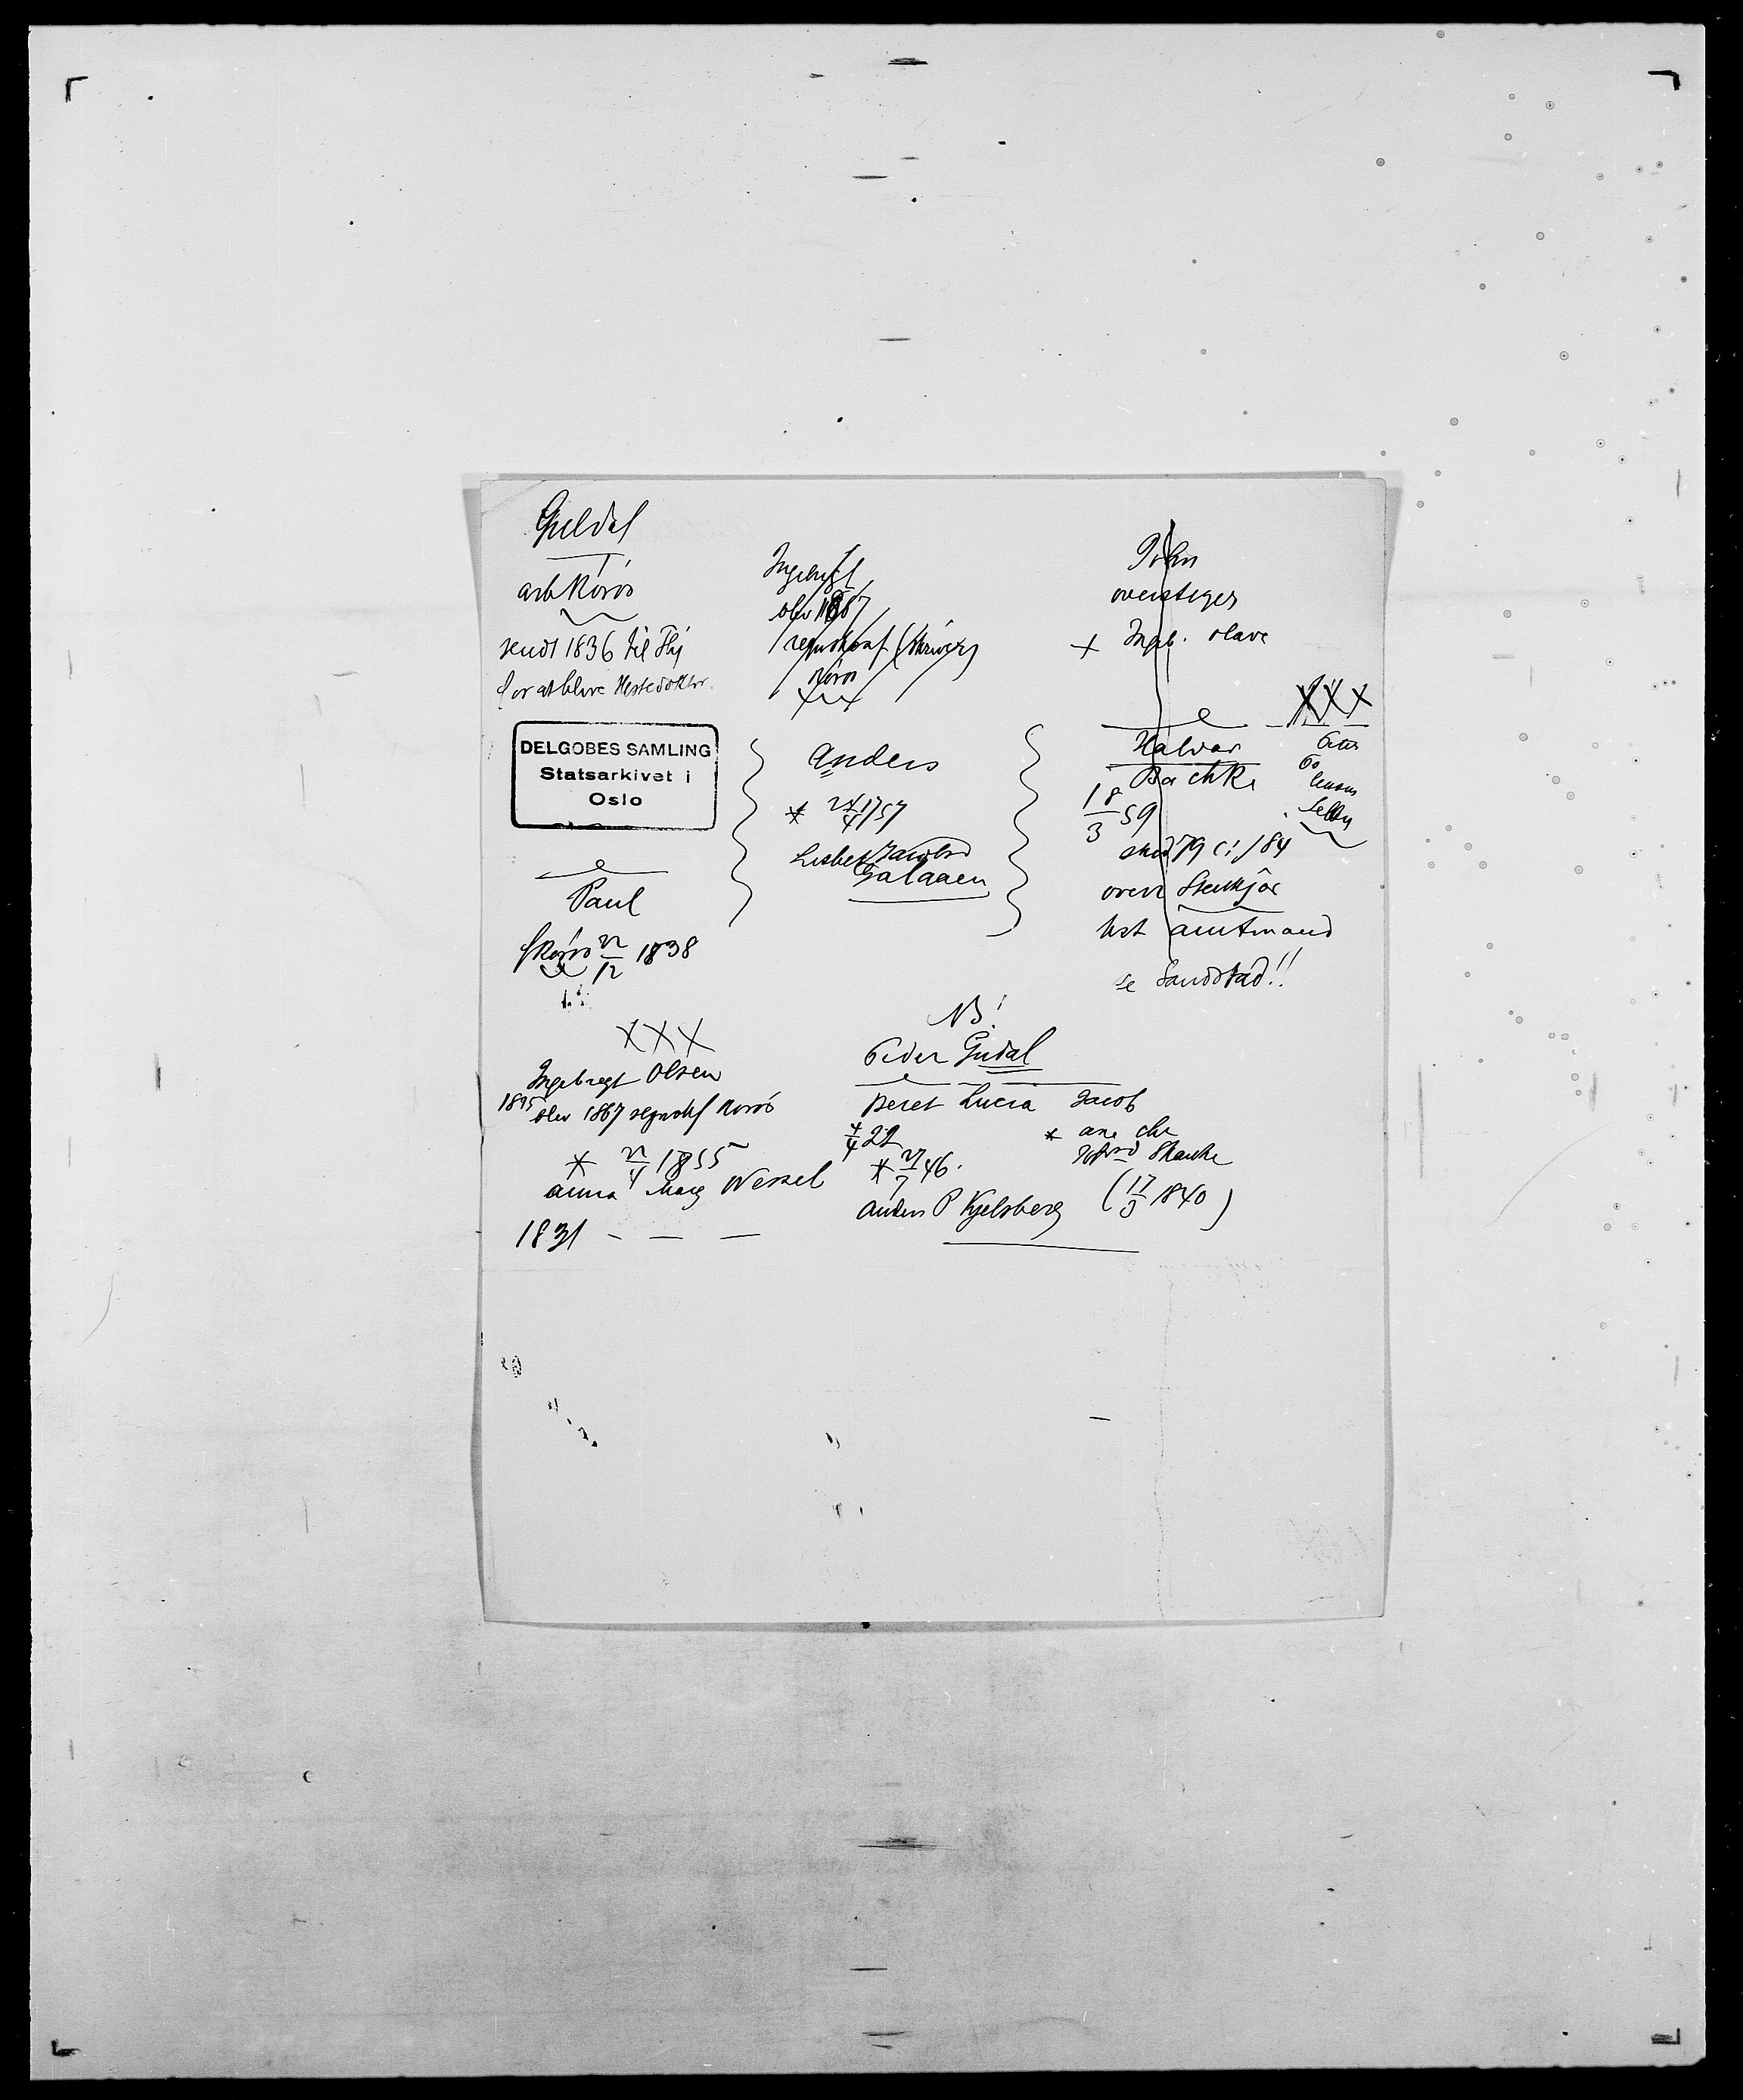 Guldal
arb Röros
sendt 1836 til Kbh
for at blive Hestedoktor
DELGOBES SAMLING
Statsarkivet i
Oslo
Paul
f Röros 22/12 1838
Ingebrigt
blev 1867
regnskabsf (skriver)
Röros
Anders
* 24/4 1757
Lisbet Jacobsd
Galaaen
John
overstiger
+ Ingb. Olave
XXX
Halvar
Bachke
18/3 59
stud 79 c: /84
overr Stenkjær
kst amtmand
se Sandstad!!
Peter
XXX
Ingebregt Olsen
1895
blev 1867 regnskf Röros
* 22/4 1855
Anna Marg Wessel
1831 - - -
NB!
Peder Guldal
Beret Lucia Jacob
4/4 22
* 27/7 46.
Anders P Kjelsberg
* ane Chr
Skanke
(17/3 1840)